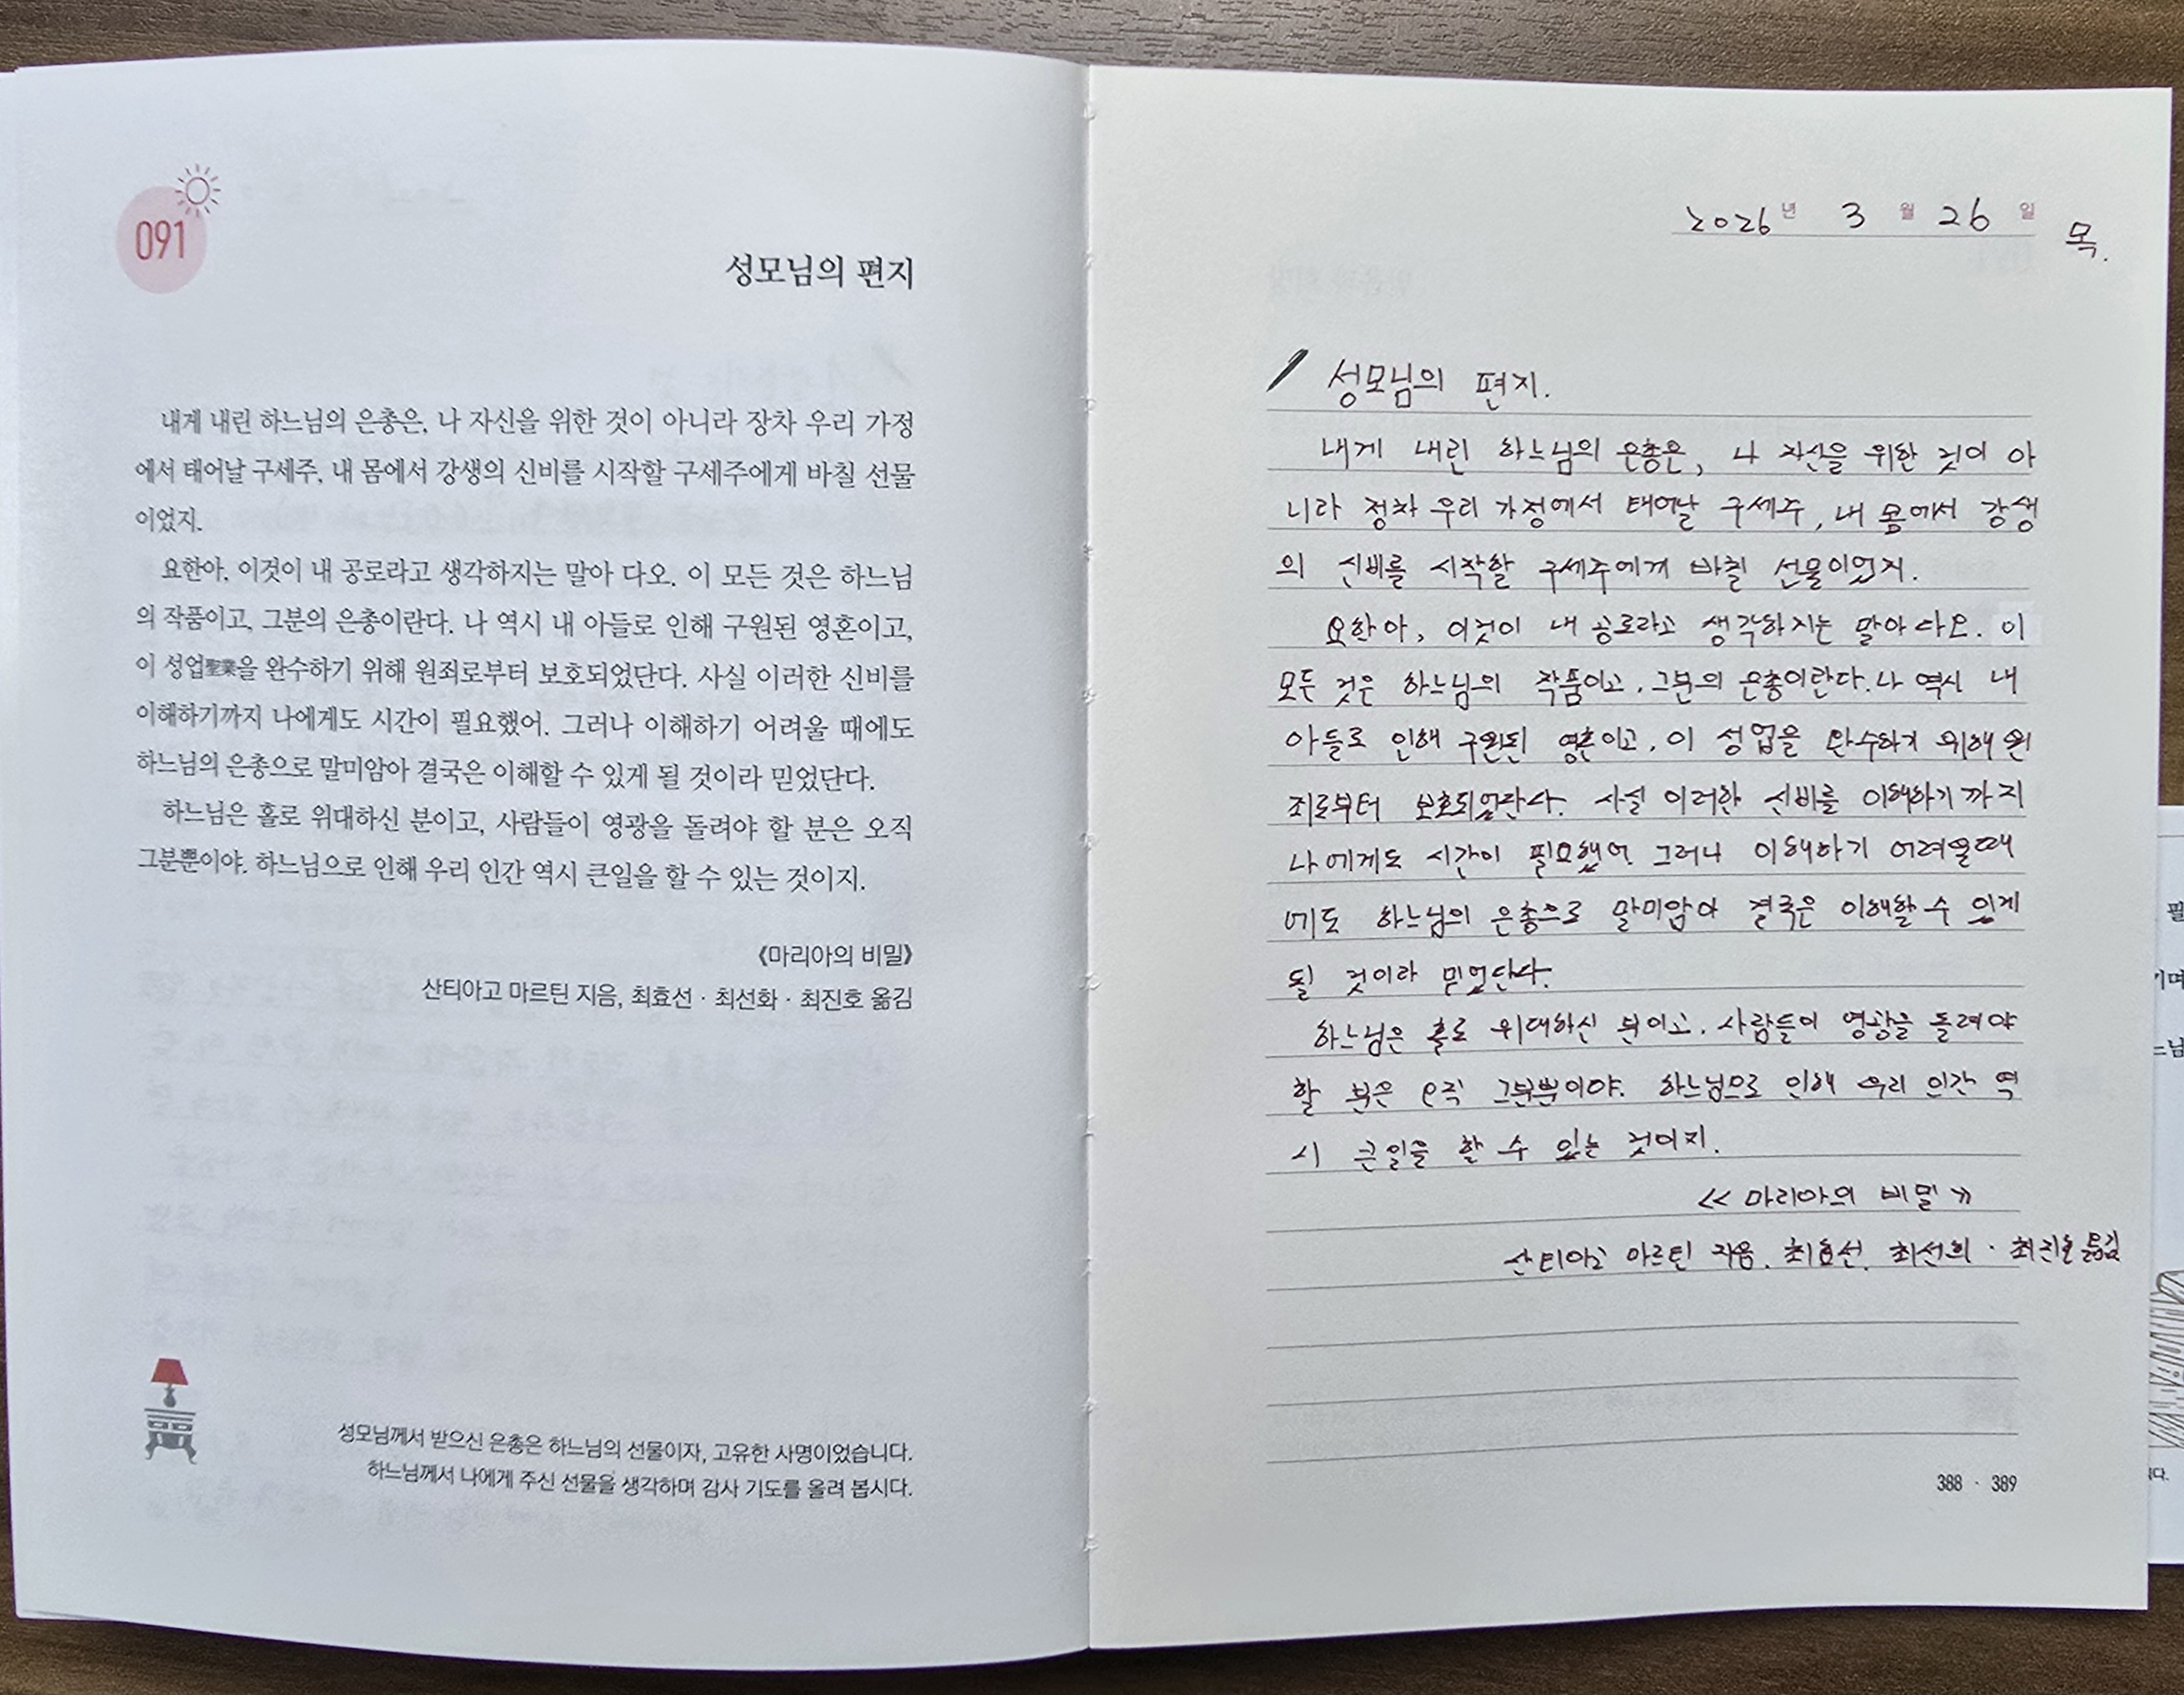 091
성모님의 편지
내게 내린 하느님의 은총은, 나 자신을 위한 것이 아니라 장차 우리 가정
에서 태어날 구세주, 내 몸에서 강생의 신비를 시작할 구세주에게 바칠 선물
이었지.
요한아, 이것이 내 공로라고 생각하지는 말아 다오. 이 모든 것은 하느님
의 작품이고, 그분의 은총이란다. 나 역시 내 아들로 인해 구원된 영혼이고,
이 성업聖業을 완수하기 위해 원죄로부터 보호되었단다. 사실 이러한 신비를
이해하기까지 나에게도 시간이 필요했어. 그러나 이해하기 어려울 때에도
하느님의 은총으로 말미암아 결국은 이해할 수 있게 될 것이라 믿었단다.
하느님은 홀로 위대하신 분이고, 사람들이 영광을 돌려야 할 분은 오직
그분뿐이야. 하느님으로 인해 우리 인간 역시 큰일을 할 수 있는 것이지.
《마리아의 비밀》
산티아고 마르틴 지음, 최효선 · 최선화 · 최진호 옮김
성모님께서 받으신 은총은 하느님의 선물이자, 고유한 사명이었습니다.
하느님께서 나에게 주신 선물을 생각하며 감사 기도를 올려 봅시다.
2026년 3월 26일 목.
성모님의 편지.
내게 내린 하느님의 은총은, 나 자신을 위한 것이 아
니라 정차 우리 가정에서 태어날 구세주, 내 몸에서 강생
의 신비를 시작할 구세주에게 바칠 선물이었지.
요한아, 이것이 내 공로라고 생각하지는 말아 다오. 이
모든 것은 하느님의 작품이고, 그분의 은총이란다. 나 역시 내
아들로 인해 구원된 영혼이고, 이 성업을 완수하기 위해 원
죄로부터 보호되었단다. 사실 이러한 신비를 이해하기까지
나에게도 시간이 필요했어. 그러나 이해하기 어려울때
에도 하느님의 은총으로 말미암아 결국은 이해할 수 있게
될 것이라 믿었단다.
하느님은 홀로 위대하신 분이고, 사람들이 영광을 돌려야
할 분은 오직 그분뿐이야. 하느님으로 인해 우리 인간 역
시 큰일을 할 수 있는 것이지.
≪ 마리아의 비밀 ≫
산티아고 마르틴 지음, 최효선, 최선희 · 최진호 옮김
388 · 389
필
기며
느님